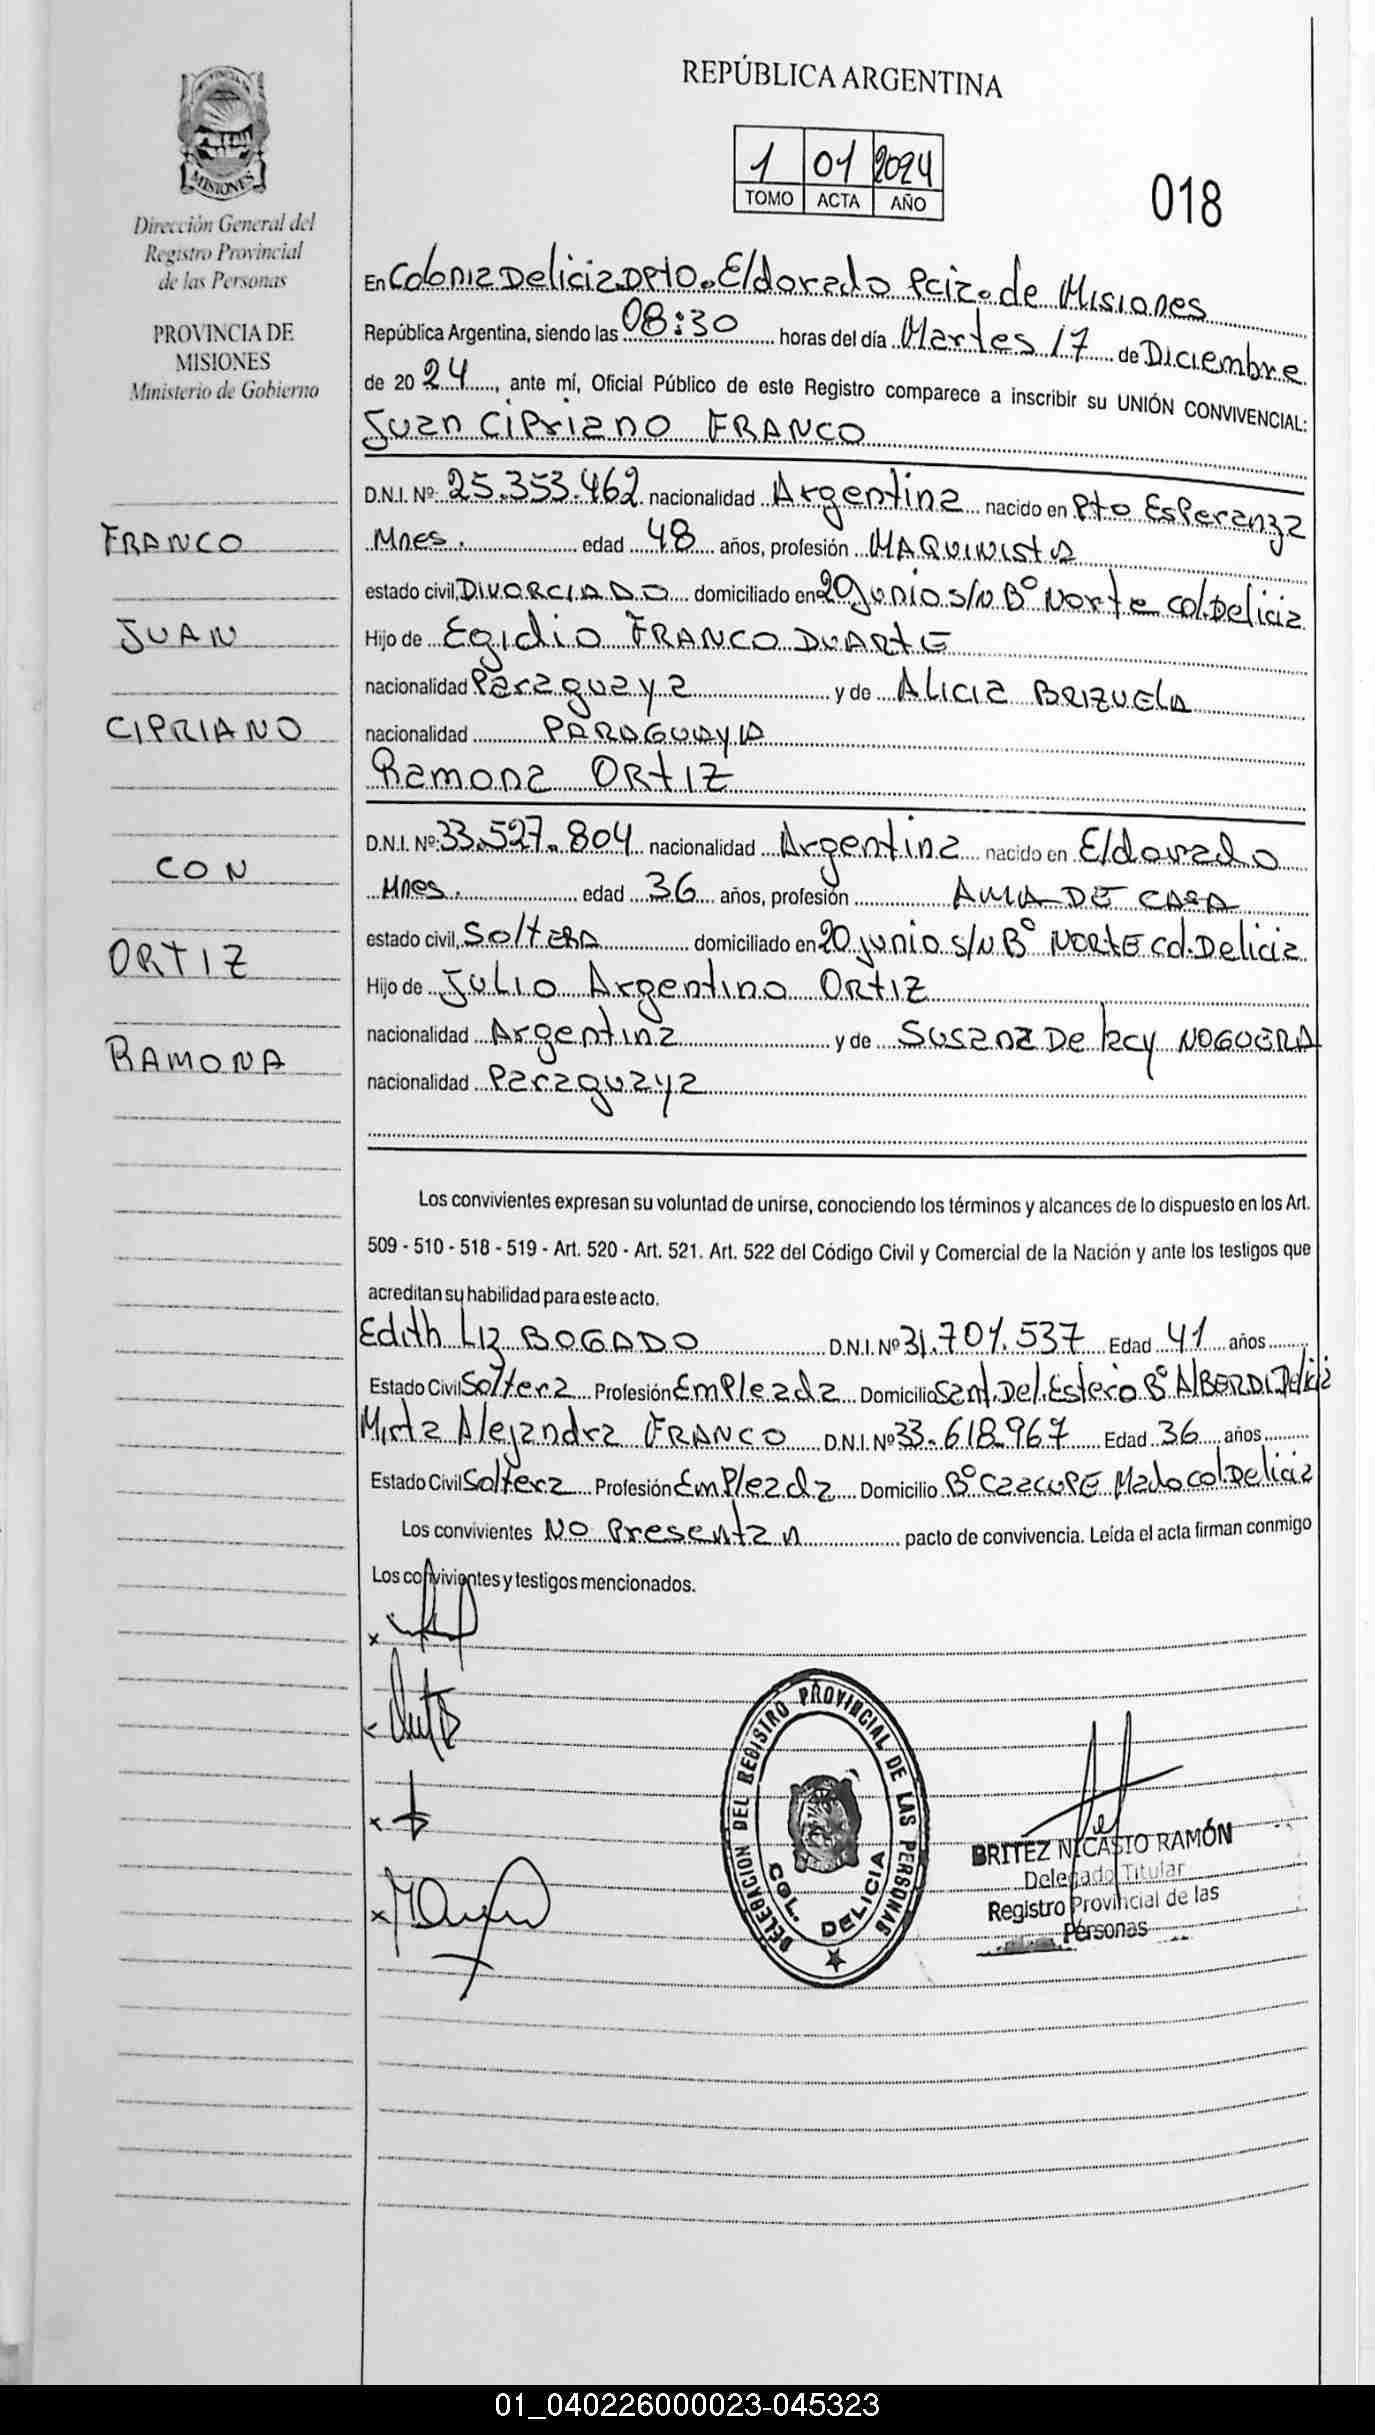 REPÚBLICA ARGENTINA
1 01 2024
TOMO ACTA AÑO
018
PROVINCIA DE
MISIONES
Dirección General del
Registro Provincial
de las Personas
PROVINCIA DE
MISIONES
Ministerio de Gobierno
FRANCO
JUAN
CIPRIANO
CON
ORTIZ
RAMONA
En Colonia Delicia Dpto. Eldorado Pcia. de Misiones
República Argentina, siendo las 08:30 horas del día Martes 17 de Diciembre
de 20 24, ante mí, Oficial Público de este Registro comparece a inscribir su UNIÓN CONVIVENCIAL:
Juan Cipriano FRANCO
D.N.I. Nº: 25.353.462 nacionalidad Argentina nacido en Pto Esperanza
Mnes. edad 48 años, profesión MAQUINISTA
estado civil, DIVORCIADO domiciliado en 20 Junio s/N Bº Norte Col. Delicia
Hijo de Egidio FRANCO DUARTE
nacionalidad Paraguaya y de Alicia BRIZUELA
nacionalidad PARAGUAYA
Ramona ORTIZ
D.N.I. Nº: 33.527.804 nacionalidad Argentina nacido en Eldorado
Mnes. edad 36 años, profesión AMA DE CASA
estado civil, Soltera domiciliado en 20 junio s/N Bº NORTE Col. Delicia
Hijo de Julio Argentino ORTIZ
nacionalidad Argentina y de Susana De NOGUERA
nacionalidad Paraguaya
Los convivientes expresan su voluntad de unirse, conociendo los términos y alcances de lo dispuesto en los Art.
509 - 510 - 518 - 519 - Art. 520 - Art. 521. Art. 522 del Código Civil y Comercial de la Nación y ante los testigos que
acreditan su habilidad para este acto.
Edith Liz BOGADO D.N.I. Nº 31.701.537 Edad 41 años
Estado Civil Soltera Profesión Empleada Domicilio Sant. Del. Estero Bº ALBERDI Delicia
Mirta Alejandra FRANCO D.N.I. Nº 33.618.967 Edad 36 años
Estado Civil Soltera Profesión Empleada Domicilio Bº Caacupe Mado Col. Delicia
Los convivientes NO Presentan pacto de convivencia. Leída el acta firman conmigo
Los convivientes y testigos mencionados.
DELEGACION DEL REGISTRO PROVINCIAL DE LAS PERSONAS
COL. DELICIA
BRITEZ NICASIO RAMÓN
Delegado Titular
Registro Provincial de las
Personas
01_040226000023-045323